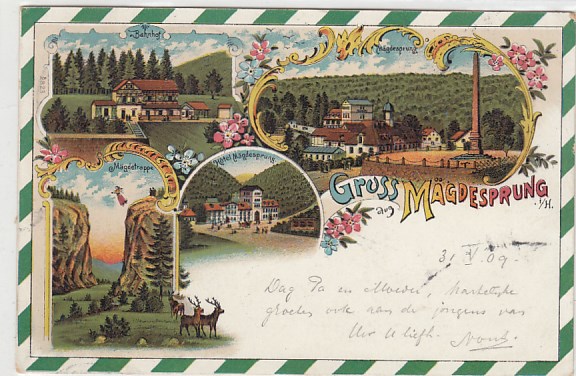 Bahnhof
Mägdesprung
Mägdetrappe
Hotel Mägdesprung
Gruss aus Mägdesprung
i/H.
31 V 09
Dag Pa en Moeder, hartelijke
groeten ook aan de jongens van
Uw